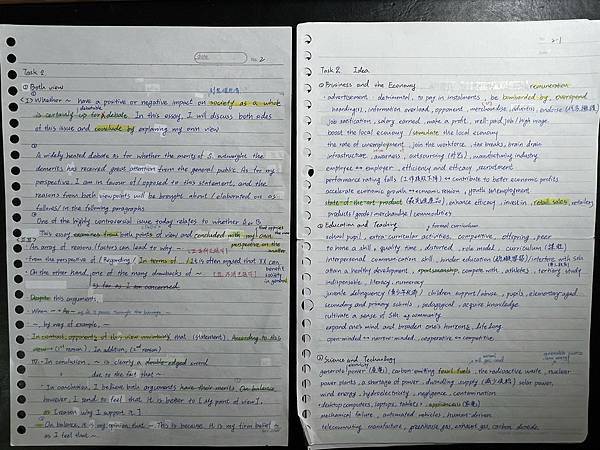 No. 2
Task 2
① Both view
<I> Whether ~ have a positive or negative impact on society as a whole
is certainly up for debate. In this essay, I will discuss both sides
of this issue and conclude by explaining my own view
②
A widely heated debate as for whether the merits of S. outweighs the
demerits has received great attention from the general public. As for my
perspective, I am in favour of / opposed to this statement, and the
reasons from both viewpoints will be brought about / elaborated on as
follows / in the following paragraphs
③
One of the highly controversial issue today relates to whether A or B
This essay examines from both points of view and concluded with my own
perspective on the matter
An array of reasons / factors can lead to why ~
from the perspective of / Regarding / In terms of , it is often agreed that XX can
benefit society in general
On the other hand, one of the many drawbacks of ~
as far as I am concerned
Despite this arguments,
When
~, by way of example, ~
In contrast, opponents of this view
that (statement). According to this
view (1st reason). In addition, (2nd reason)
In conclusion, ~ is clearly a double-edged sword
due to the fact that ~
In conclusion, I believe both arguments have their merits. On balance,
however, I tend to feel that it is better to [My point of view],
as [reason why I support it]
On balance, it is my opinion that ~. This is because it is my firm belief ~
as I feel that ~
2-1
Task 2 Idea
① Business and the Economy
remuneration
advertisement, detrimental, to pay in instalments, be bombarded by, overspend
hoarding(s), information overload, opponent, merchandise
job satification, salary earned, make a profit, well-paid job / high wage
boost the local economy / stimulate the local economy
the rate of unemployment, join the workforce, tax breaks, brain drain
infrastructure, awareness, outsourcing (外包), manufacturing industry
employee ↔ employer, efficiency and efficacy, recruitment
performance rating falls contribute to better economic profits
accelerate economic growth ↔ economic recession, youth unemployment
state-of-the-art product, enhance efficacy, invest in, retail sales, retailers
products / goods / merchandise / commodities
② Education and Teaching
formal curriculum
school pupil, extra-curricular activities, competitive, offspring, peer
to hone a skill, quality time, distorted, role model, curriculum (課程)
interpersonal communication skill, hinder education / interfere with
attain a healthy development, sportsmanship, compete with, athletes, tertiary study
indispensable, literacy, numeracy
juvenile delinquency, children support / abuse, pupils, elementary-aged
secondary and primary schools, pedagogical, acquire knowledge
cultivate a sense of Sth
expand one's mind and broaden one's horizons, life long
open-minded ↔ narrow-minded, cooperative ↔ competitive
③ Science and Technology
generate power, carbon-emitting fossil fuels, the radioactive waste, nuclear
power plants, a shortage of power, solar power,
wind energy, hydroelectricity, negligence, contamination
desktop computers, laptops, tablets, appliances
mechanical failure, automated vehicles, human-driven
telecommuting, manufacture, greenhouse gas, exhaust gas, carbon dioxide